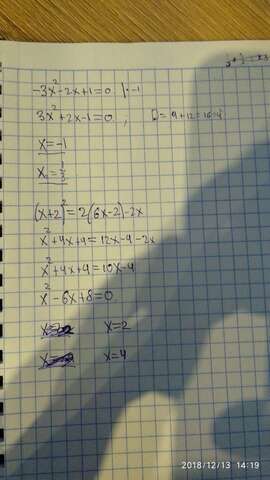 -3x²-2x+1=0 |·-1
3x²+2x-1=0 ,
x=-1
x=1/3
(x+2)²=2(6x-2)-2x
x²+4x+4=12x-4-2x
x²+4x+4=10x-4
x²-6x+8=0
x=2
x=4
2018/12/13 14:19